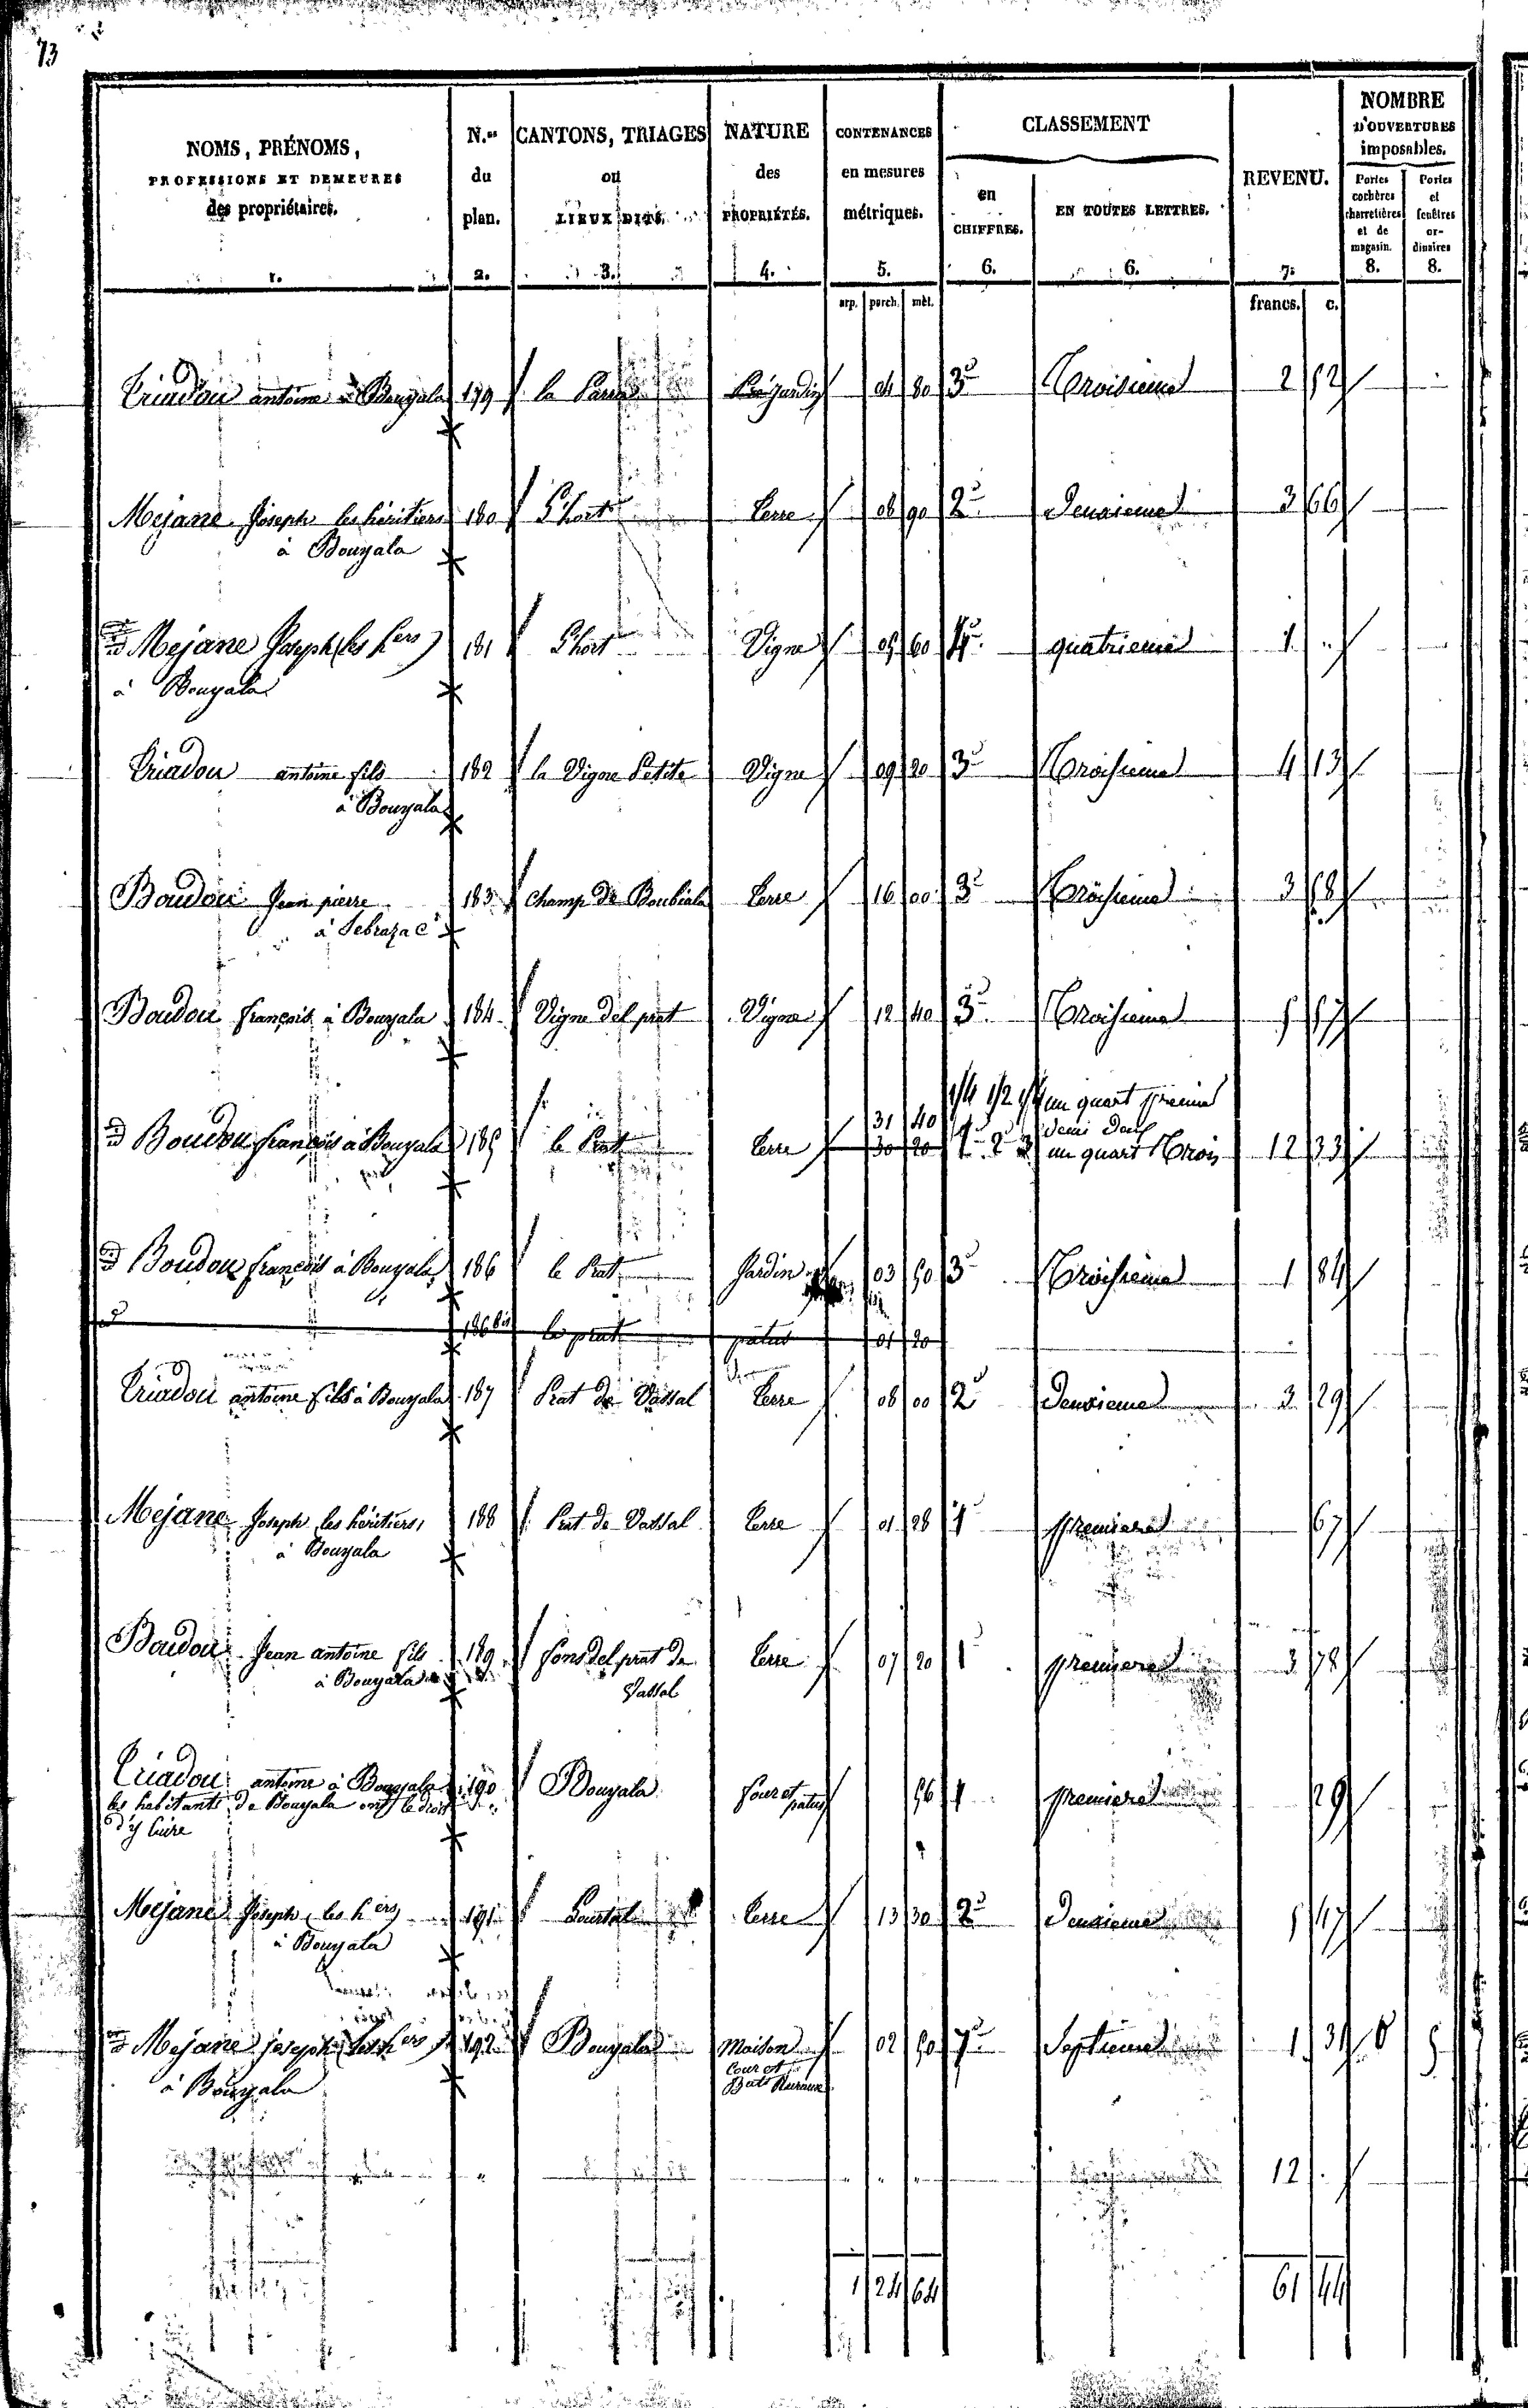 73
NOMS, PRÉNOMS, PROFESSIONS ET DEMEURES des propriétaires. 1.
N.os du plan. 2.
CANTONS, TRIAGES ou LIEUX DITS. 3.
NATURE des PROPRIÉTÉS. 4.
CONTENANCES en mesures métriques. 5.
CLASSEMENT
en CHIFFRES. 6.
EN TOUTES LETTRES. 6.
REVENU. 7.
NOMBRE D'OUVERTURES imposables.
Portes cochères charretières et de magasin. 8.
Portes et fenêtres ordinaires 8.
arp. perch. mèt. francs. c.
Triadou antoine à Bouzala 179 la Jardin 04 80 3e Troisieme 2 52
Mejane Joseph les héritiers 180 L'hort Terre 08 90 2e Deuxieme 3 66
à Bouzala
id Mejane Joseph (les hers) 181 L'hort Vigne 05 60 4e quatrieme 1 "
à Bouzala
Triadou antoine fils 182 la Vigne Petite Vigne 09 20 3e Troisieme 4 13
à Bouzala
Boudou Jean pierre 183 Champ de Boubiala Terre 16 00 3e Troisieme 3 68
à Sebrazac
Boudou françois à Bouzala 184 Vigne del prat Vigne 12 40 3e Troisieme 5 57
1/4 1/2 1/4 un quart premier
31 40 demi deux
id Boudou françois à Bouzala 185 le Prat Terre 30 20 1 2 3 un quart Trois 12 33
id Boudou françois à Bouzala 186 le Prat Jardin 03 50 3e Troisieme 1 84
d 186 bis le prat patus 01 20
Triadou antoine fils à Bouzala 187 Prat de Vassal Terre 08 00 2e Deuxieme 3 29
Mejane Joseph les héritiers 188 Prat de Vassal Terre 01 28 1e premiere 67
à Bouzala
Boudou Jean antoine fils 189 fons del prat de Terre 07 20 1e premiere 3 78
à Bouzala Vassal
Triadou antoine à Bouzala 190 Bouzala four et patus 56 1 premiere 29
les habitants de Bouzala ont le droit
d'y cuire
Mejane Joseph (les hers 191 Terre 13 30 2e Deuxieme 5 47
à Bouzala
id Mejane joseph (les hers) 192 Bouzala Maison 02 50 7e Septieme 1 31 5
à Bouzala Cour et
Bats Ruraux
12
1 24 64 61 44